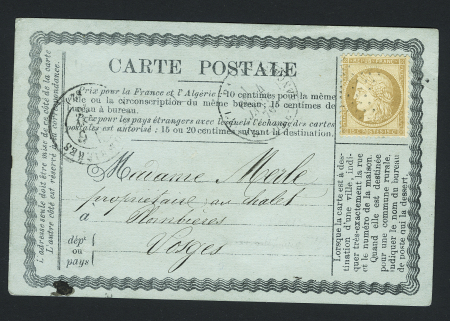 CARTE POSTALE
Prix pour la France et l'Algérie: 10 centimes pour la même
ville ou la circonscription du même bureau; 15 centimes de
bureau à bureau.
Prix pour les pays étrangers avec lesquels l'échange des cartes
postales est autorisé: 15 ou 20 centimes suivant la destination.
L'adresse seule doit être mise de ce côté de la carte
L'autre côté est réservé à la correspondance.
Madame
propriétaire au chalet
à Plombières
Vosges
dépt
ou
pays
Lorsque la carte est à des-
tination d'une ville, indi-
quer très-exactement la rue
et le numéro de la maison.
Quand elle est destinée
pour une commune rurale,
indiquer le nom du bureau
de poste qui la dessert.